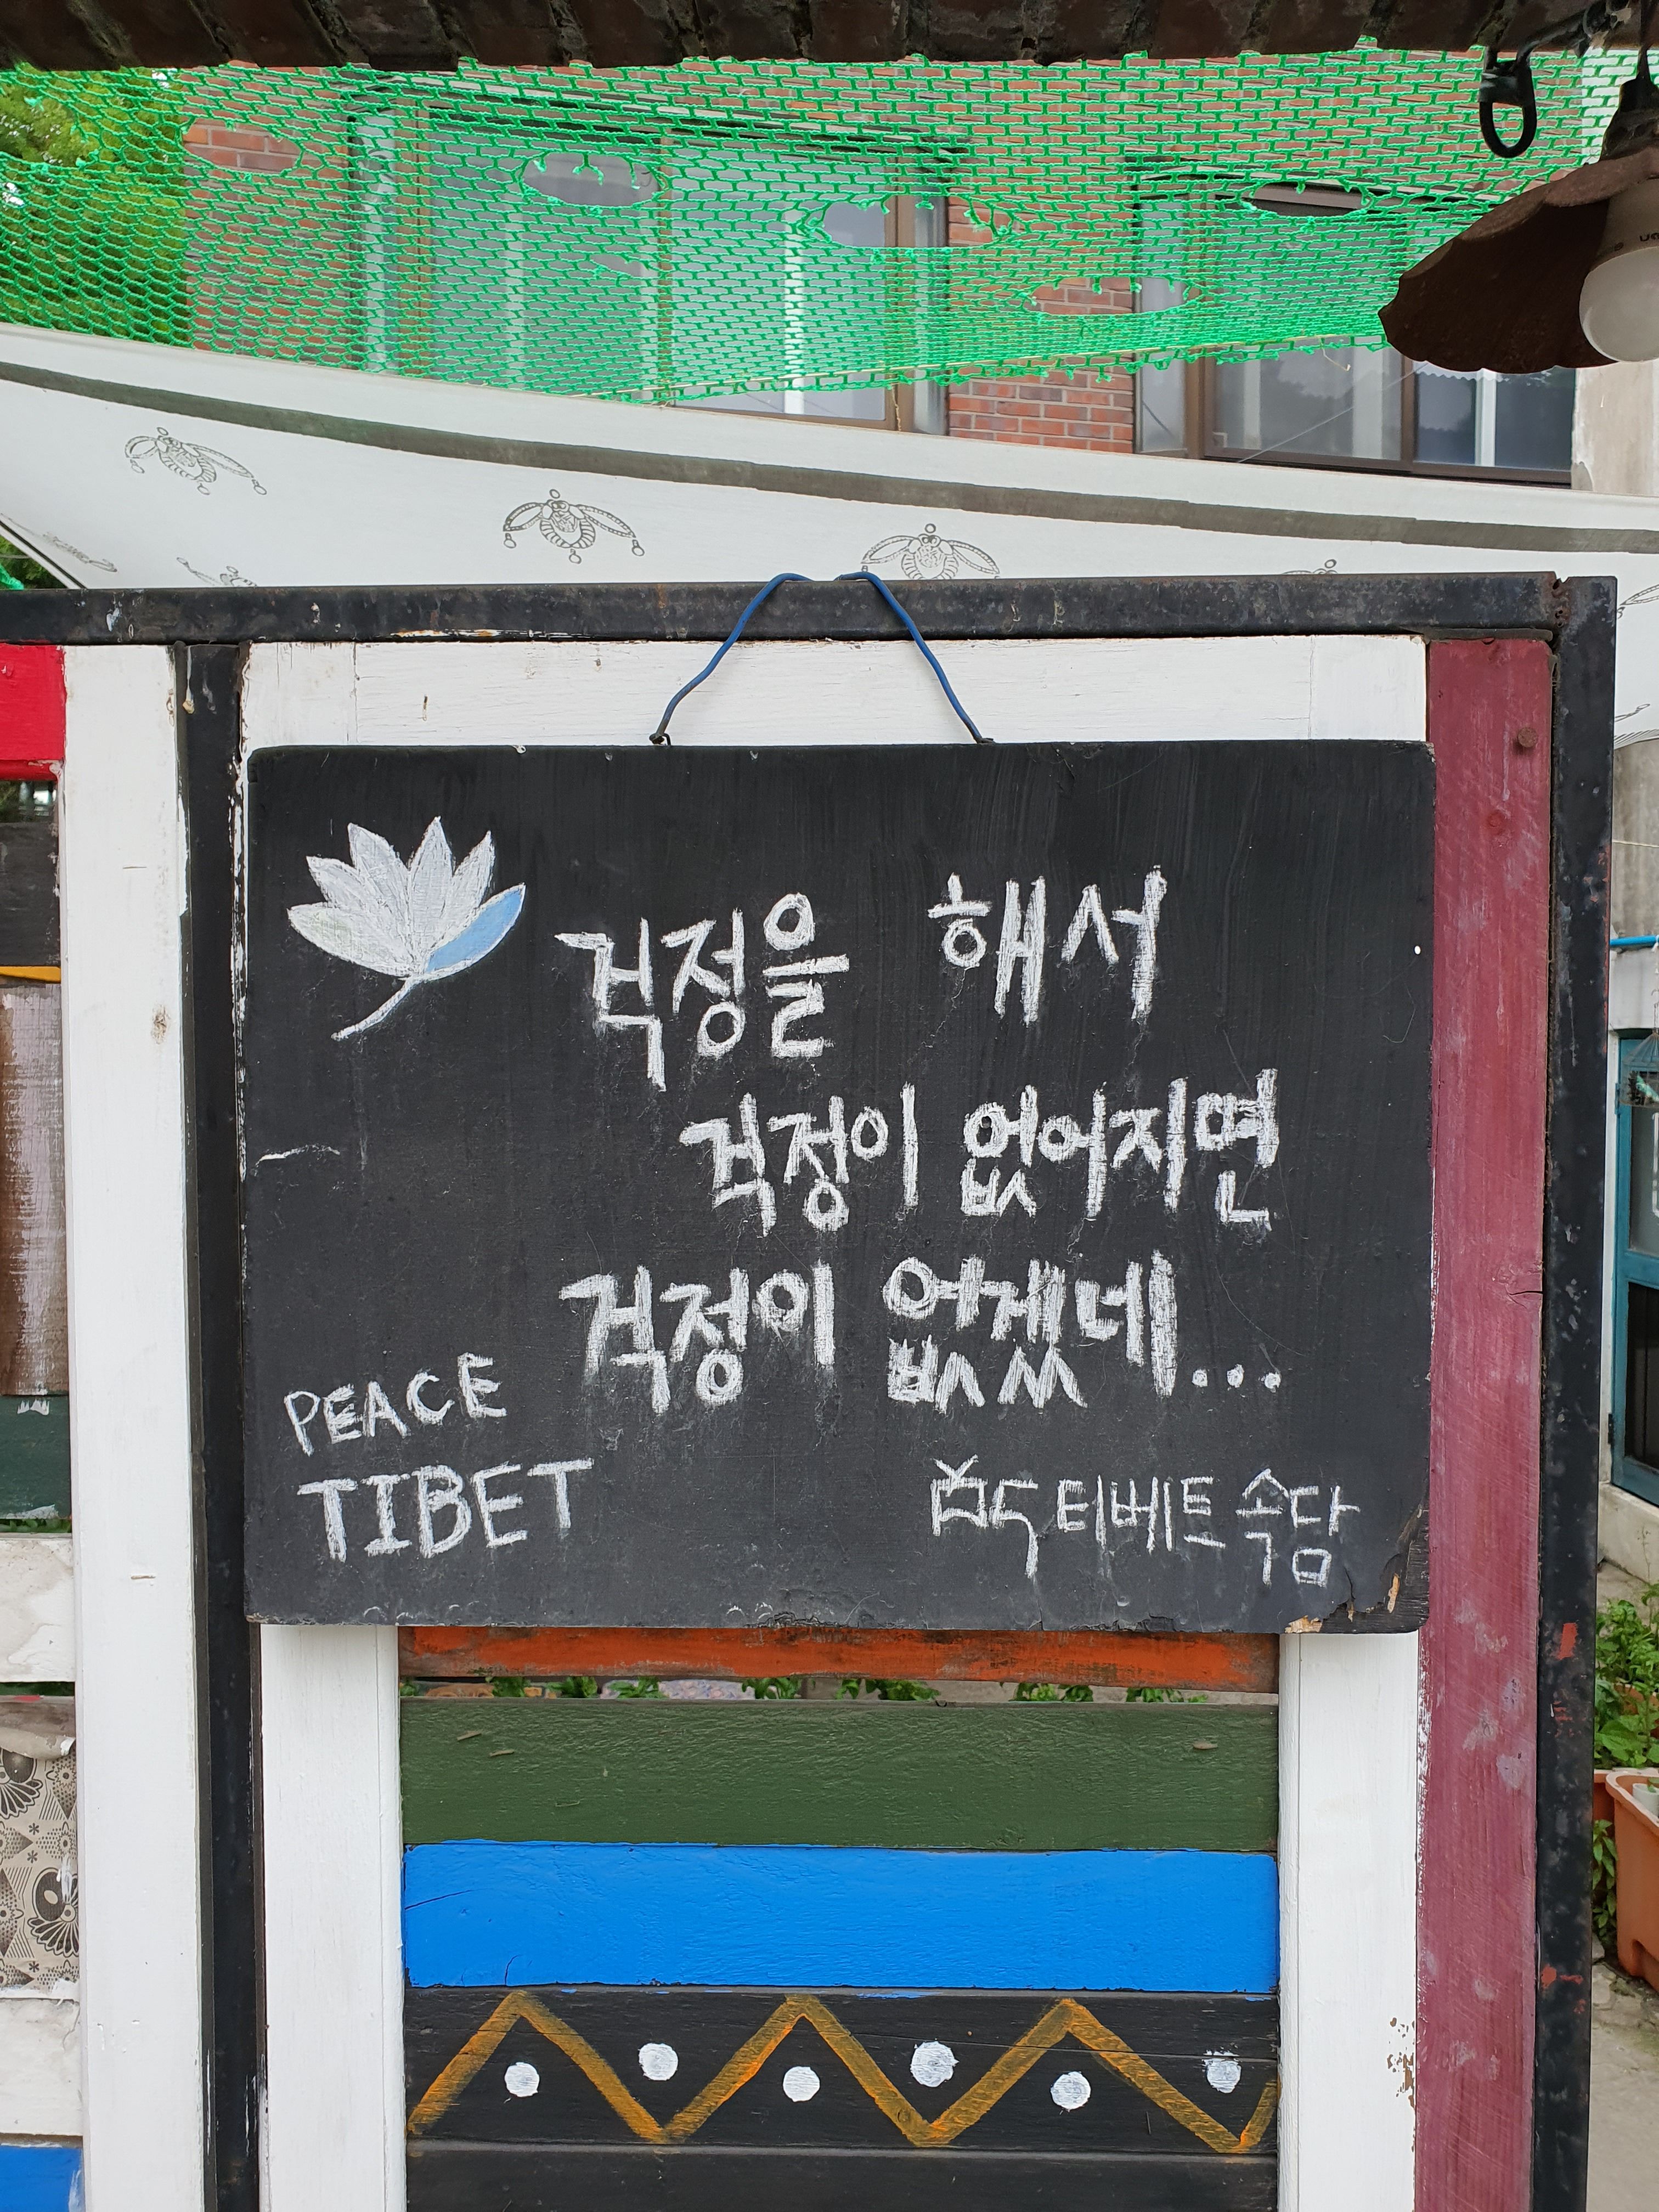 걱정을 해서
걱정이 없어지면
걱정이 없겠네...
PEACE
TIBET
བོད 티베트 속담